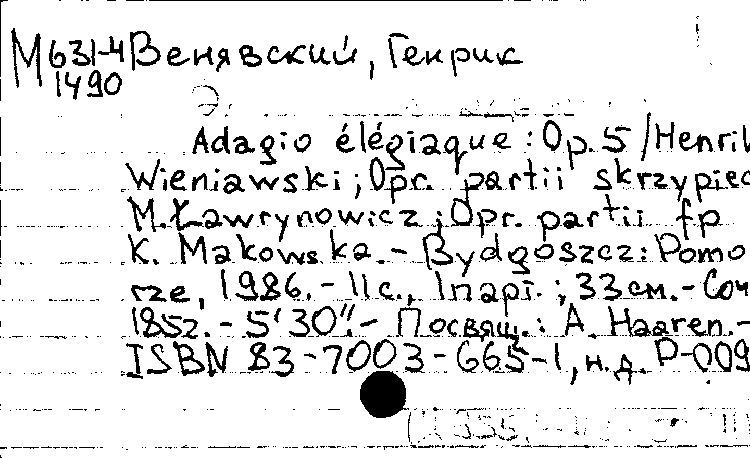 М631-4 Венявский, Генрик
1490
Adagio élégiaque : Op. 5 / Henrik
Wieniawski ; Opr. partii skrzypiec
M. Ławrynowicz ; Opr. partii fp
K. Makowska. - Bydgoszcz : Pomo
rze, 1986. - 11 с., 1 парт. ; 33 см. - Соч
1852. - 5'30". - Посвящ.: A. Haaren. -
ISBN 83-7003-665-1, н.д. P-009